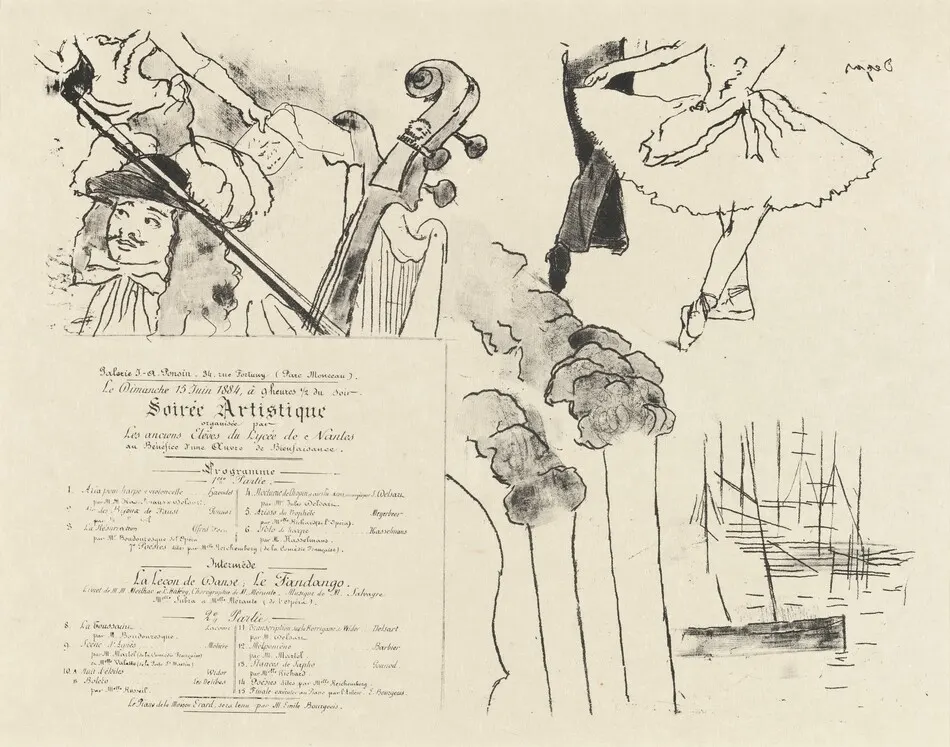 Degas
Galerie J.-A. Ponsin, 34, rue Fortuny (Parc Monceau).
Le Dimanche 15 Juin 1884, à 9 heures ½ du soir
Soirée Artistique
organisée par
Les anciens Elèves du Lycée de Nantes
au Bénéfice d'une Œuvre de Bienfaisance.
Programme
1ère Partie.
1. Aria pour harpe et violoncelle
par M. M.
Gounod
3. La Résurrection
par Mr. Boudouresque de l'Opéra
7. Poésies dites par Melle Reichemberg (de la Comédie Française).
4. Nocturne J. Delsart
par Mr. Jules Delsart.
5. Arioso du Prophète Meyerbeer
par Melle Richard de l'Opéra.
6. Solo de harpe Hasselmans
par M. Hasselmans.
Intermède
La Leçon de Danse; Le Fandango.
Livret de M. M. Meilhac et L. Halévy, Chorégraphie de M. Mérante, Musique de M. Salvayre
Melle Subra & Melle Mérante (de l'opéra).
2e Partie
8. La Toussaint Lacome
par M. Boudouresque.
9. Scène Molière
par M. Martel (de la Comédie Française)
et Melle
10. A Nuit d'étoiles Widor
B Boléro Léo Delibes
par Melle
11. Transcription sur la Korrigane de Widor Delsart
par M. Delsart.
12. Melpomène Barbier
par M. Martel
13. Stances de Sapho Gounod
par Melle Richard
14. Poésies dites par Melle Reichemberg.
15. Finale exécuté au Piano par l'Auteur E. Bourgeois.
Le Piano de la Maison Erard, sera tenu par M. Emile Bourgeois.